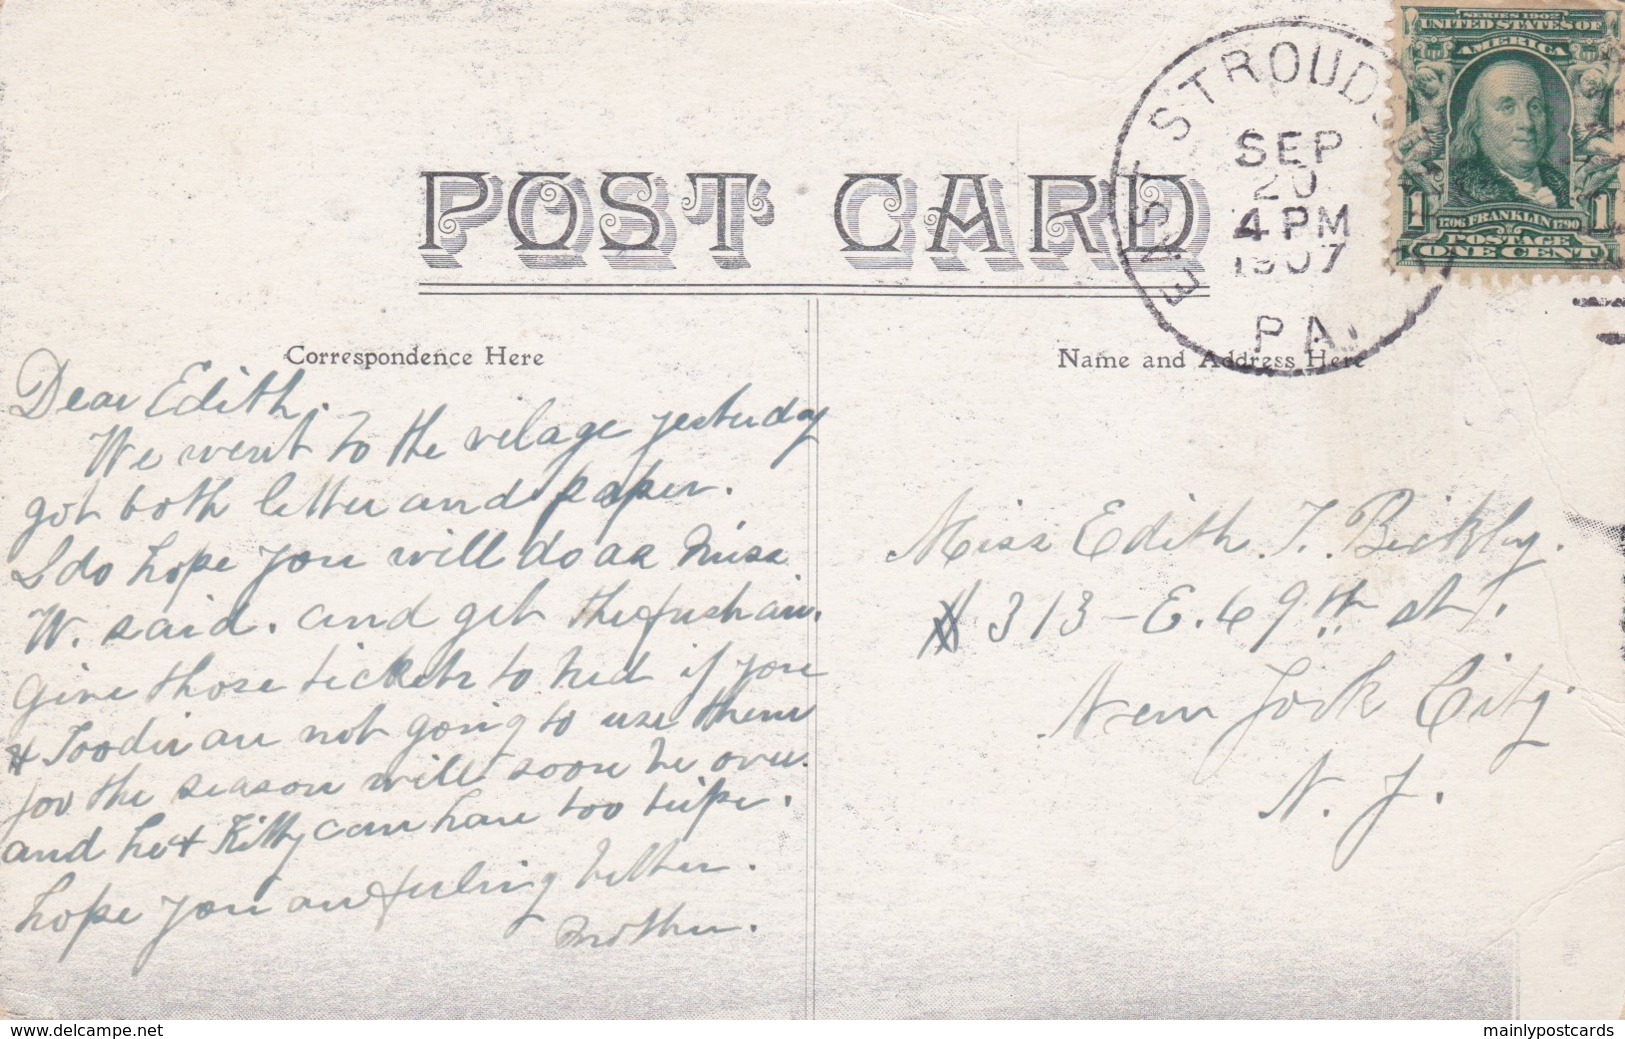 SERIES 1902
UNITED STATES OF
AMERICA
1 1
1706 FRANKLIN 1790
POSTAGE
ONE CENT
EAST STROUDS
SEP
20
4 PM
1907
PA.
POST CARD
Correspondence Here
Name and Address Here
Dear Edith.
We went to the vilage yesterday
got both letter and paper.
I do hope you will do as Miss
W. said. and get the fresh air.
Give those tickets to Ned if you
& are not going to use them
for the season will soon be over.
and he & Kitty can have too trips.
hope you are feeling better.
Mother.
Miss Edith T. Bickley.
313 - E. 69th st.
New York City
N. Y.
www.delcampe.net
mainlypostcards